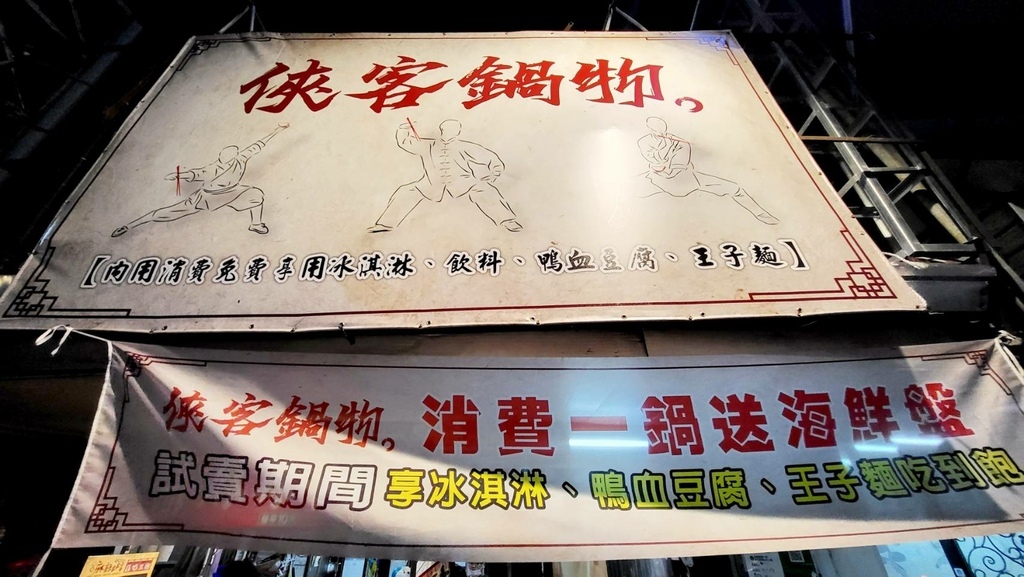 俠客鍋物。
【內用消費免費享用冰淇淋、飲料、鴨血豆腐、王子麵】
俠客鍋物。消費一鍋送海鮮盤
試賣期間享冰淇淋、鴨血豆腐、王子麵吃到飽